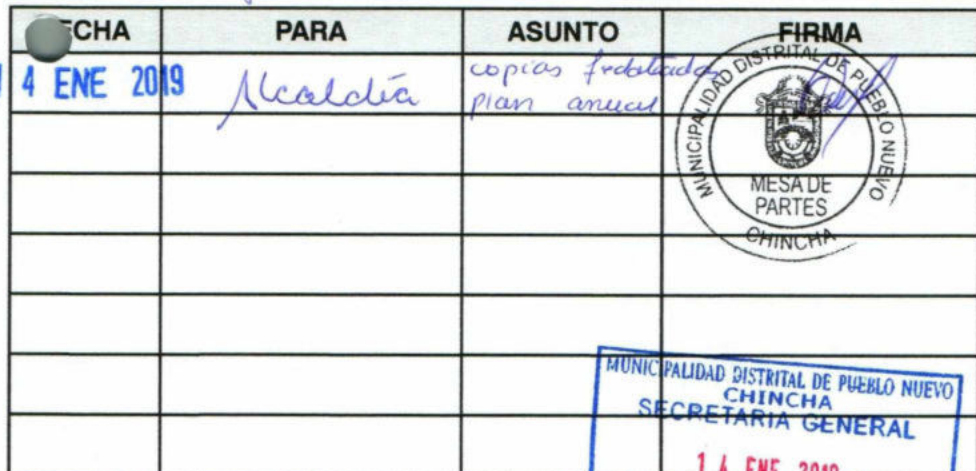 FECHA PARA ASUNTO FIRMA
14 ENE 2019 Alcaldía copias fedateadas
plan anual
MUNICIPALIDAD DISTRITAL DE PUEBLO NUEVO
MESA DE
PARTES
CHINCHA
MUNICIPALIDAD DISTRITAL DE PUEBLO NUEVO
CHINCHA
SECRETARIA GENERAL
14 ENE 2019